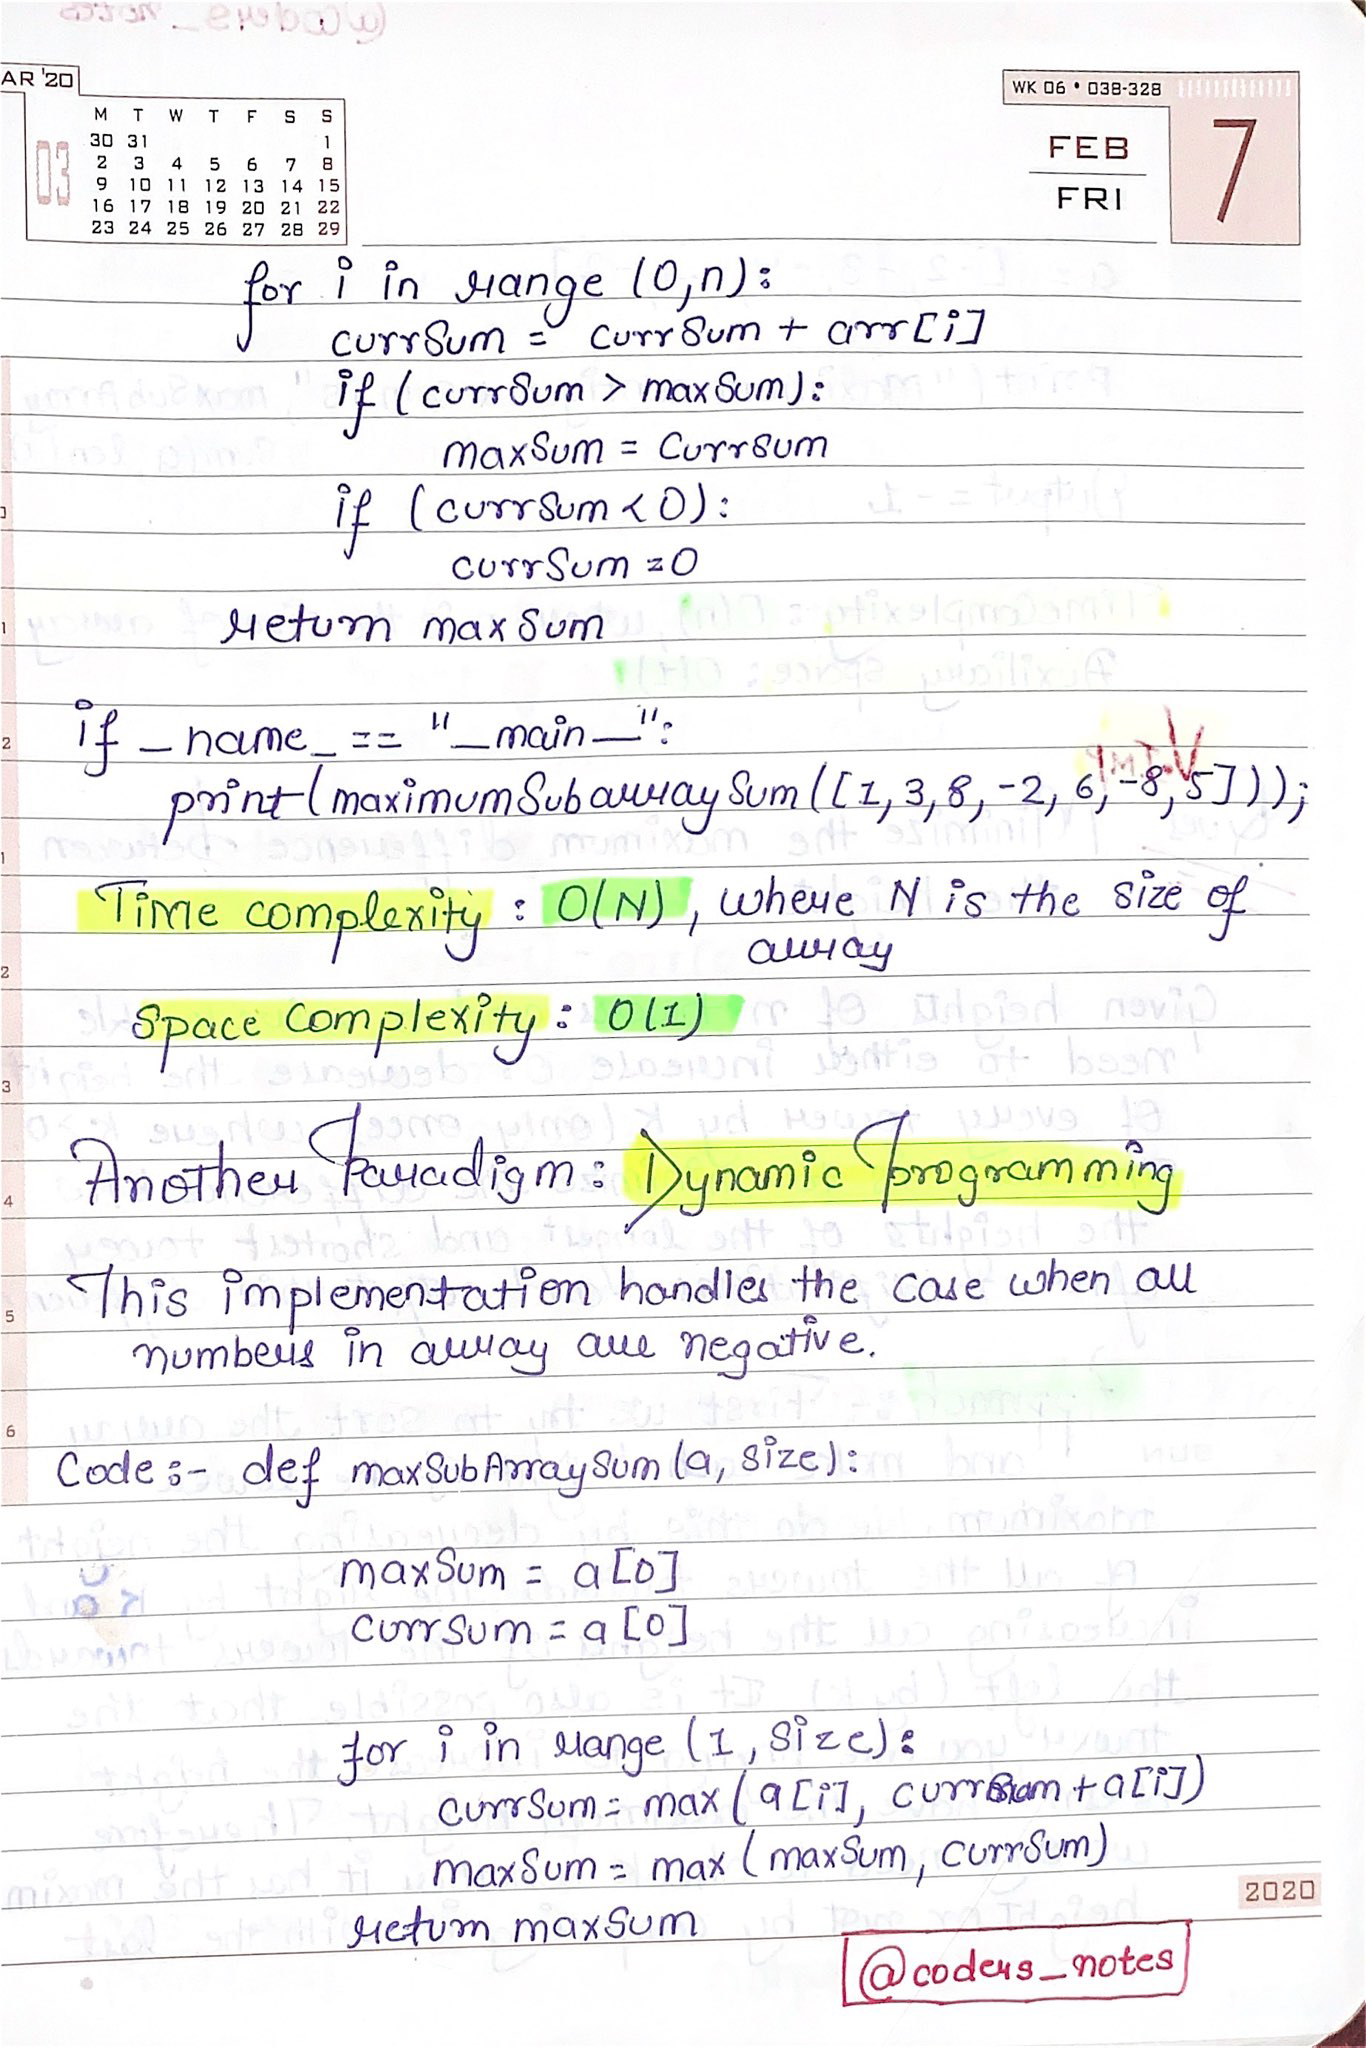 AR '20
03
M T W T F S S
30 31 1
2 3 4 5 6 7 8
9 10 11 12 13 14 15
16 17 18 19 20 21 22
23 24 25 26 27 28 29
WK 06 • 038-328
FEB
FRI
7
for i in range (0,n):
currSum = currSum + arr[i]
if (currSum > maxSum):
maxSum = CurrSum
if (currSum < 0):
currSum = 0
return maxSum
if _name_ == "_main_":
print(maximumSubarraySum([1, 3, 8, -2, 6, -8, 5]));
Time complexity : O(N), where N is the size of
array
Space Complexity : O(1)
Another Paradigm : Dynamic programming
This implementation handles the case when all
numbers in array are negative.
Code :- def maxSubArraySum (a, size):
maxSum = a[0]
currSum = a[0]
for i in range (1, size):
currSum = max (a[i], currSum + a[i])
maxSum = max (maxSum, currSum)
return maxSum
2020
@coders_notes